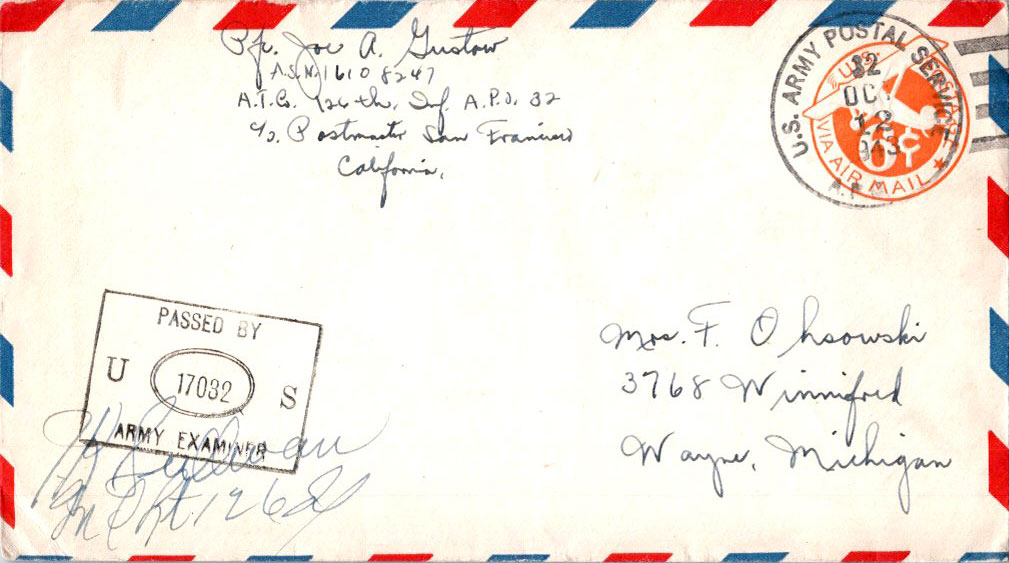 Pfc. Joe A. Gustow
A.S.N. 16108247
A.T.Co. 126th. Inf. A.P.O. 32
c/o Postmaster San Francisco
California.
U.S. ARMY POSTAL SERVICE
32
OCT
12
1943
A.P.
U.S. POSTAGE
6¢
VIA AIR MAIL
PASSED BY
U 17032 S
ARMY EXAMINER
Sullivan
126
Mrs. F. Ohsowski
3768 Winnifred
Wayne, Michigan